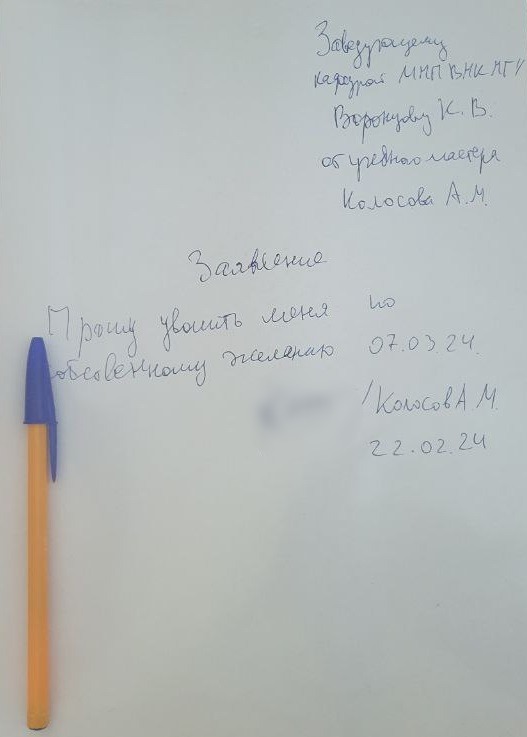 Заведующему
кафедрой ММП ВМК МГУ
Воронцову К. В.
от учебного мастера
Колосова А.М.
Заявление
Прошу уволить меня по
собственному желанию 07.03.24.
/Колосов А М.
22.02.24